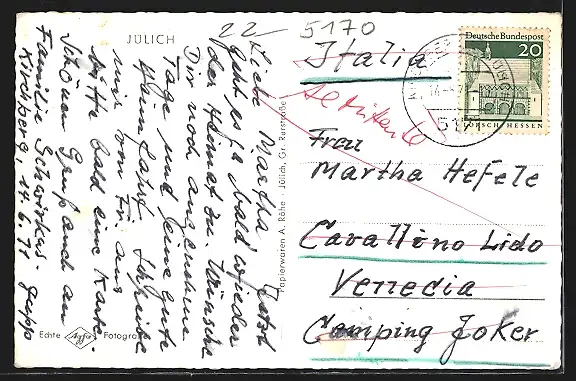 JÜLICH
22
5170
Liebe Martha! Jetzt
geht es ja bald wieder
der Heimat zu. Wünsche
Dir noch angenehme
Tage und eine gute
Heimfahrt. Schreibe
mir von Dir aus
bitte bald eine Karte.
Schönen Gruß auch an
Familie
Kirchberg, 14.6.71
Echte Agfa Fotografie
Papierwaren A. Röhe · Jülich, Gr. Rurstraße
Deutsche Bundespost
20
LORSCH/HESSEN
Italia
al mittente
Frau
Martha Hefele
Cavallino Lido
Venedia
Camping Joker